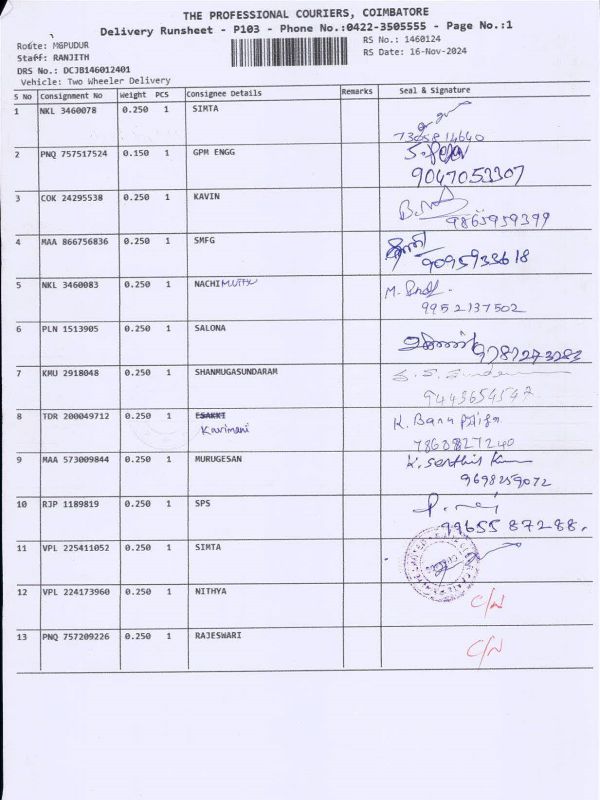 THE PROFESSIONAL COURIERS, COIMBATORE
Delivery Runsheet - P103 - Phone No.:0422-3505555 - Page No.:1
Route: MGPUDUR
RS No.: 1460124
Staff: RANJITH
RS Date: 16-Nov-2024
DRS No.: DCJB146012401
Vehicle: Two Wheeler Delivery
S No Consignment No Weight PCS Consignee Details Remarks Seal & Signature
1 NKL 3460078 0.250 1 SIMTA
7305814640
2 PNQ 757517524 0.150 1 GPM ENGG
9047053307
3 COK 24295538 0.250 1 KAVIN
9865959399
4 MAA 866756836 0.250 1 SMFG
9095933618
5 NKL 3460083 0.250 1 NACHIMUTHU
9952137502
6 PLN 1513905 0.250 1 SALONA
9787273283
7 KMU 2918048 0.250 1 SHANMUGASUNDARAM
9443654547
8 TDR 200049712 0.250 1 ESAKKI K. Banu priya
Kavimani 7868827240
9 MAA 573009844 0.250 1 MURUGESAN K. Senthil Kum
9698259072
10 RJP 1189819 0.250 1 SPS
99655 87288.
11 VPL 225411052 0.250 1 SIMTA
12 VPL 224173960 0.250 1 NITHYA C/N
13 PNQ 757209226 0.250 1 RAJESWARI C/N